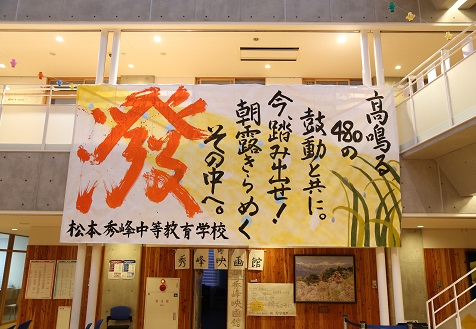 高鳴る
480の
鼓動と共に。
今、踏み出せ！
朝露きらめく
その中へ。
潑
松本秀峰中等教育学校
秀峰映画館